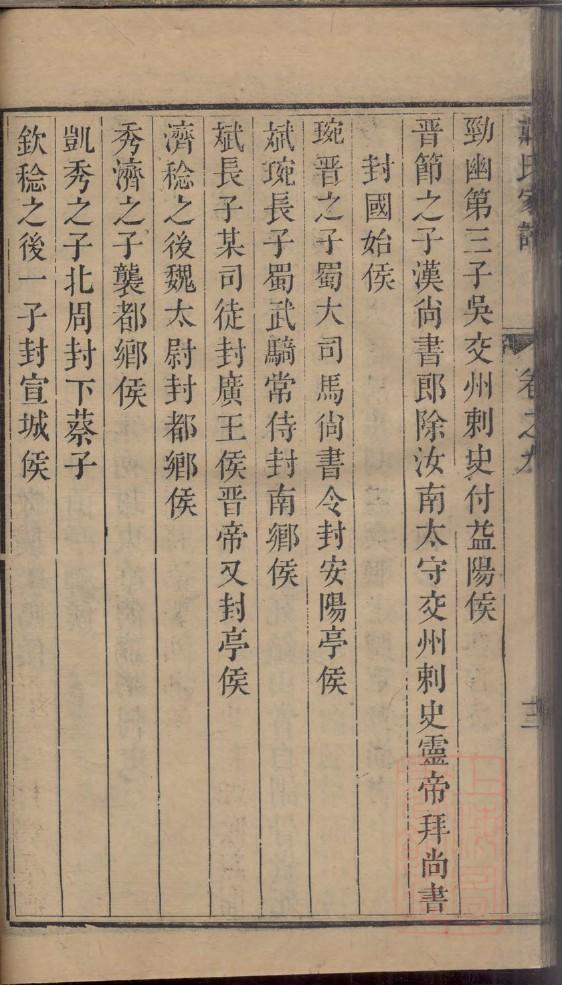 氏家譜 卷之九 十三
勁幽第三子吳交州刺史付益陽侯
晋節之子漢尙書郎除汝南太守交州刺史靈帝拜尙書
封國始侯
琬晋之子蜀大司馬尙書令封安陽亭侯
斌琬長子蜀武騎常侍封南鄉侯
斌長子某司徒封廣王侯晋帝又封亭侯
濟稔之後魏太尉封都鄉侯
秀濟之子襲都鄉侯
凱秀之子北周封下蔡子
欽稔之後一子封宣城侯